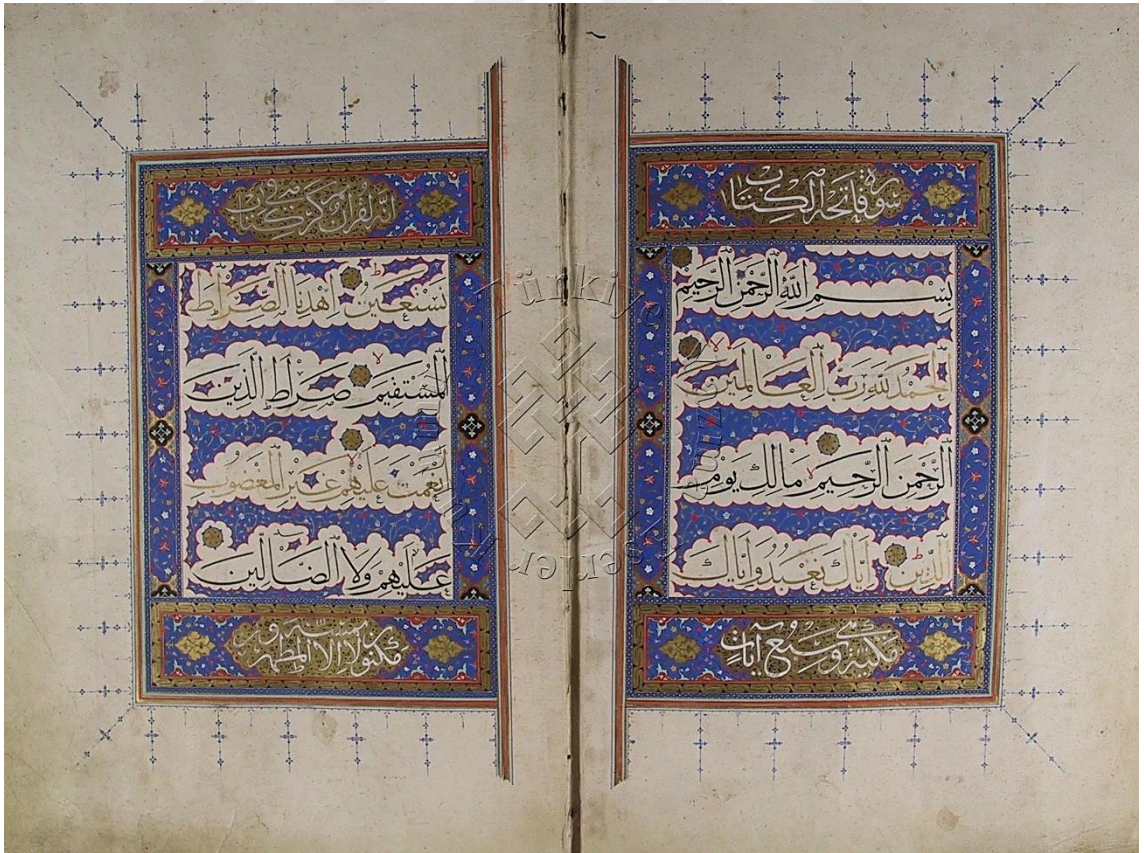 سورة فاتحة الكتاب
بِسْمِ اللَّهِ الرَّحْمَنِ الرَّحِيمِ
الْحَمْدُ لِلَّهِ رَبِّ الْعَالَمِينَ
الرَّحْمَنِ الرَّحِيمِ مَالِكِ يَوْمِ
الدِّينِ إِيَّاكَ نَعْبُدُ وَإِيَّاكَ
مكية وهي سبع آيات
إنه لقرآن كريم في كتاب
نَسْتَعِينُ اهْدِنَا الصِّرَاطَ
الْمُسْتَقِيمَ صِرَاطَ الَّذِينَ
أَنْعَمْتَ عَلَيْهِمْ غَيْرِ الْمَغْضُوبِ
عَلَيْهِمْ وَلَا الضَّالِّينَ
مكنون لا يمسه إلا المطهرون